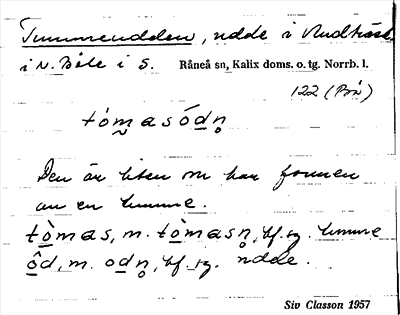 Tummeudden, udde i Rudträsk
i N. Bäle i S. Råneå sn, Kalix doms. o. tg. Norrb. l.
122 (Bn)
tómasódn̥
Den är liten m har formen
av en tumme.
tòmas, m. tòmasn̥, bf. sg. tumme
ôd, m. odn̥, bf. sg. udde.
Siv Classon 1957